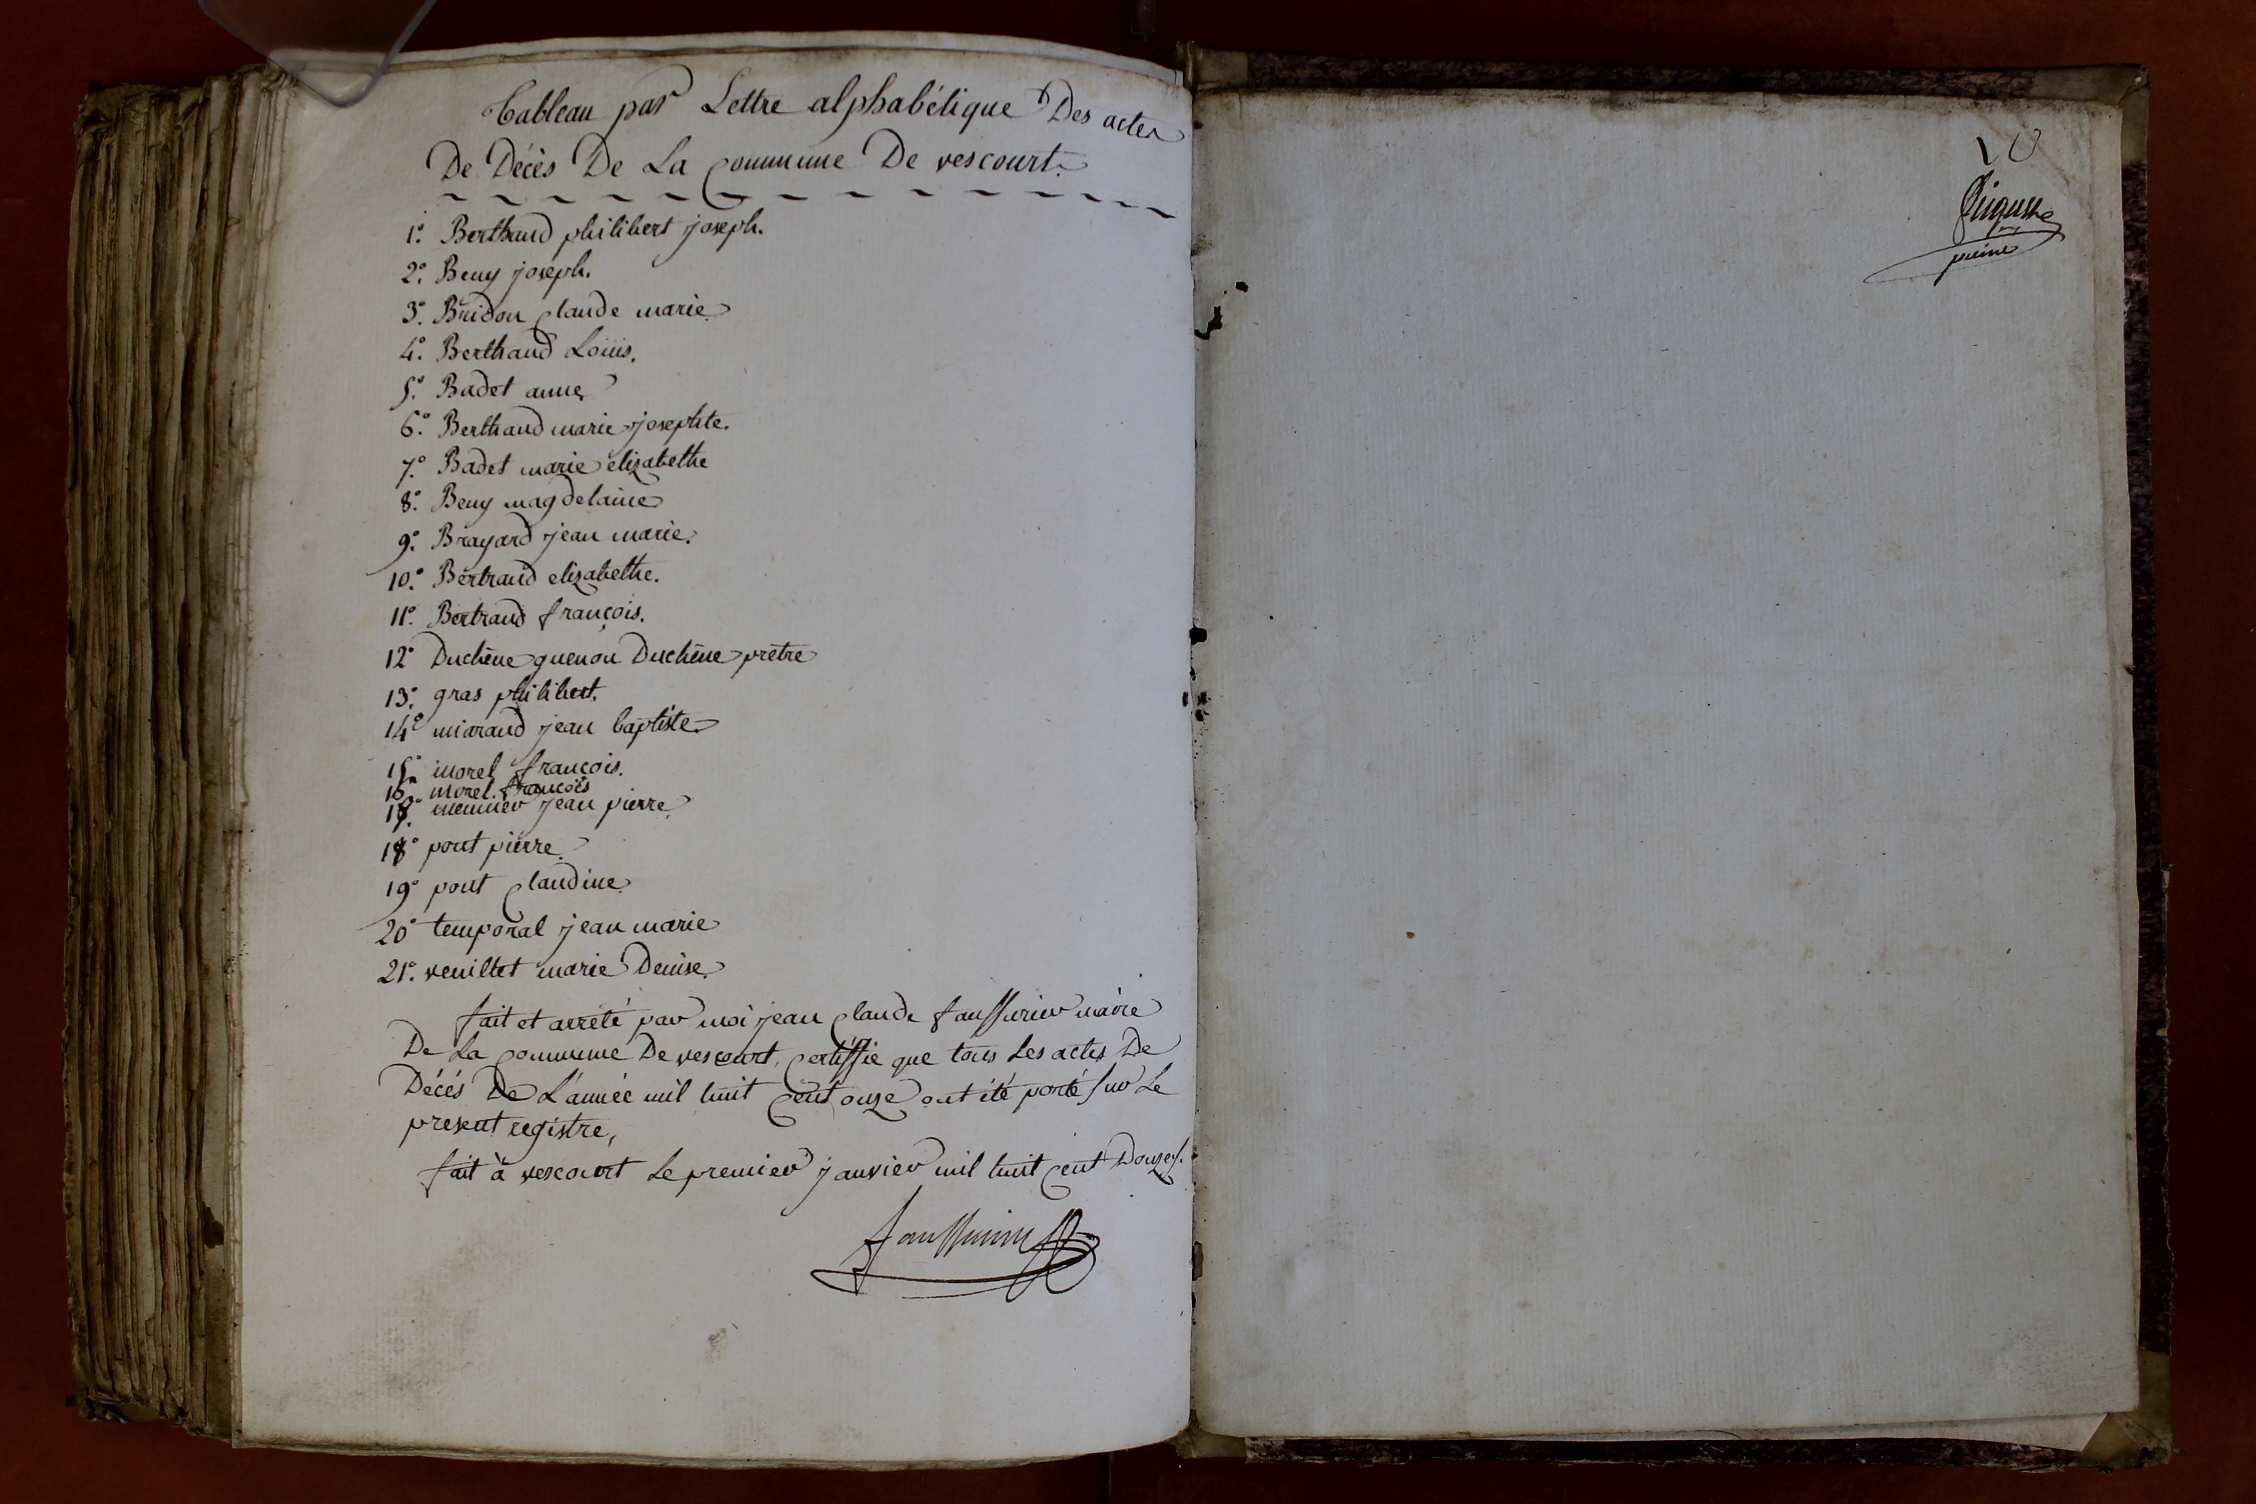 Tableau par Lettre alphabétique Des actes
De Décès De La Commune De vescourt.
1.° Berthaud philibert joseph.
2.° Beny joseph.
3.° Bridon Claude marie
4.° Berthaud Loüis.
5.° Badet anne
6.° Berthaud marie josephte.
7.° Badet marie elizabethe
8.° Beny magdelaine
9.° Brayard jean marie.
10.° Bertraud elizabethe.
11.° Bertraud françois.
12° Duchêne guenou Duchêne prêtre
13.° gras philibert.
14° miaraud jean baptiste
15° morel françois.
16 morel françois
17.° jean pierre.
18° pont pierre.
19° pont Claudine
20° temporal jean marie
21.° veuillet marie Denise.
fait et arrêté par moi jean Claude faussurier maire
De La Commune De vescourt, Certiffie que tous Les actes De
Décés De L'année mil huit Cent onze ont été porté sur Le
present registre,
fait à vescourt Le premier janvier mil huit Cent Douze.
10